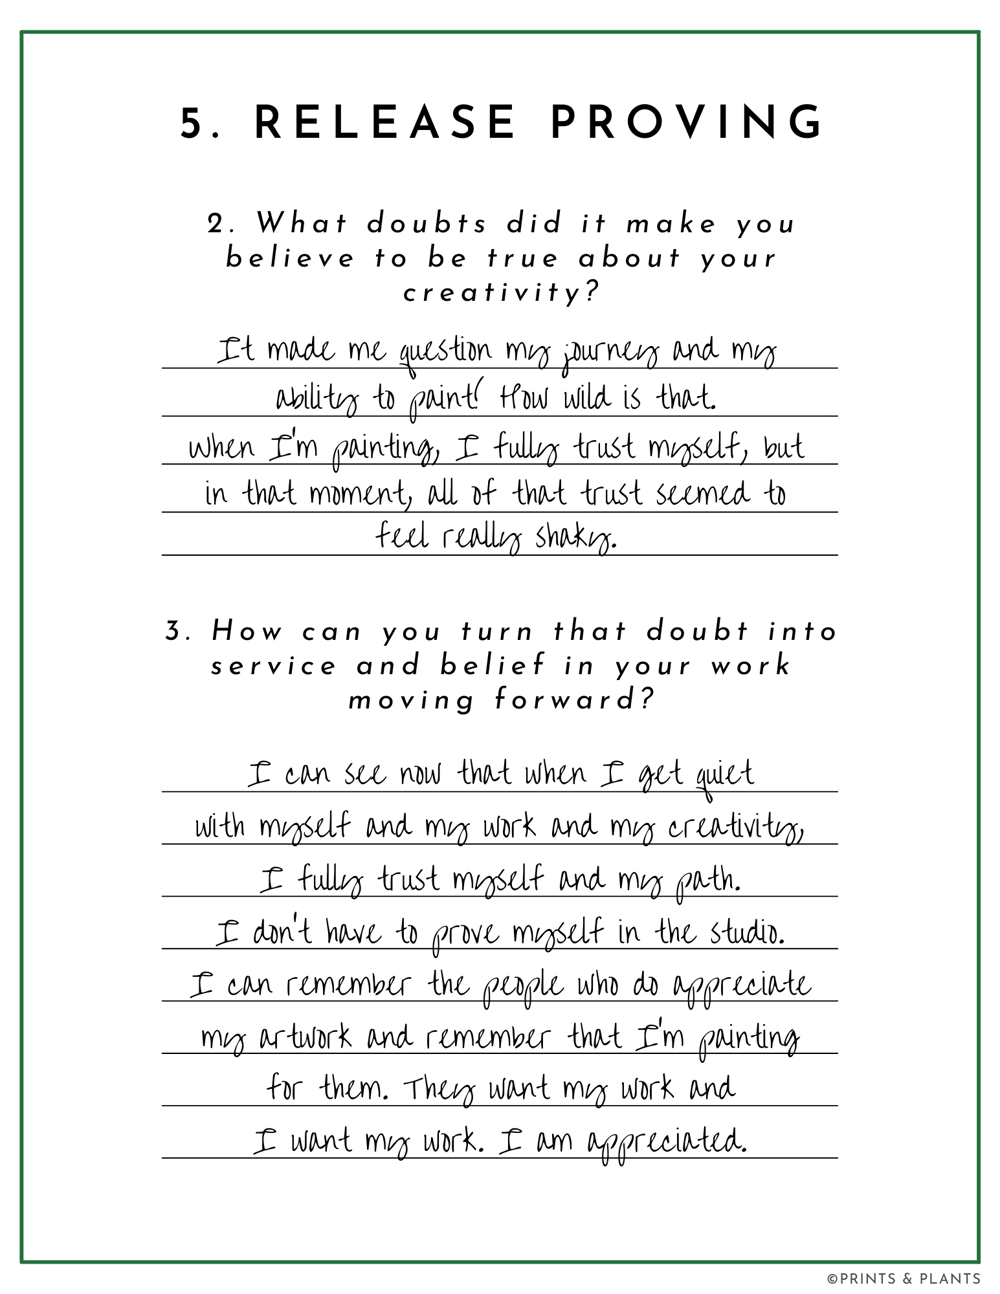 5. RELEASE PROVING
2. What doubts did it make you
believe to be true about your
creativity?
It made me question my journey and my
ability to paint! How wild is that.
When I'm painting, I fully trust myself, but
in that moment, all of that trust seemed to
feel really shaky.
3. How can you turn that doubt into
service and belief in your work
moving forward?
I can see now that when I get quiet
with myself and my work and my creativity,
I fully trust myself and my path.
I don't have to prove myself in the studio.
I can remember the people who do appreciate
my artwork and remember that I'm painting
for them. They want my work and
I want my work. I am appreciated.
©PRINTS & PLANTS